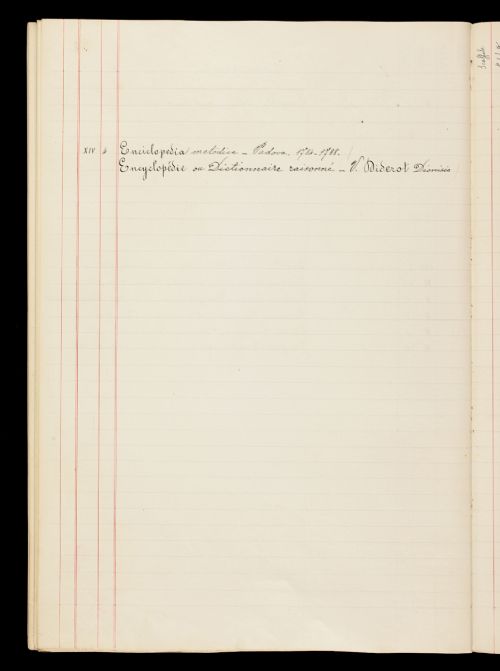 XIV 6 Enciclopedia metodica – Padova. 1784-1788.
Encyclopédie ou Dictionnaire raisonné – V. Diderot Dionisio